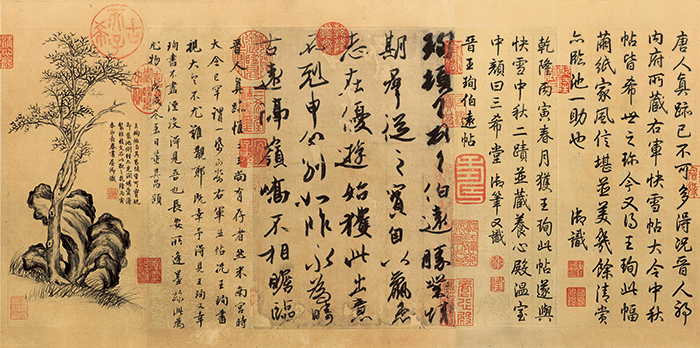 唐人真跡已不可多得況晉人耶
內府所藏右軍快雪帖大令中秋
帖皆希世之珍今又得王珣此幅
繭紙家風信堪並美幾餘清賞
亦臨池一助也 御識
乾隆丙寅春月獲王珣此帖遂與
快雪中秋二蹟並藏養心殿溫室
中顏曰三希堂 御筆又識
晉王珣伯遠帖
珣頓首頓首伯遠勝業情
期群從之寶自以羸患
志在優遊始獲此出意
不剋申分別如昨永為疇
古遠隔嶺嶠不相瞻臨
晉人真跡惟二王尚有存者然米南宮時
大令已罕謂一紙可當右軍五帖況王珣書
視大令不尤難覯耶既幸予得見王珣又幸
珣書不盡湮沒得見吾也長安所逢墨跡此為
尤物 戊戌冬至日董其昌題
古希天子